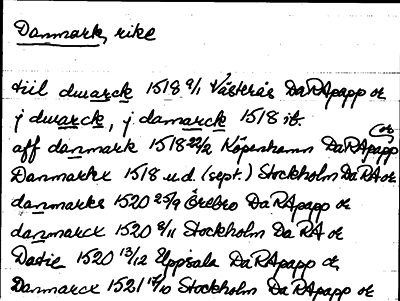 Danmark, rike
till dwarck 1518 9/1 Västerås DaRApapp or
j dwarck, j damarck 1518 ib.
aff danmark 1518 22/2 Köpenhamn DaRApapp or
Danmarkx 1518 u.d. (sept.) Stockholm DaRA or
danmarks 1520 25/9 Örebro DaRApapp or
danmarck 1520 8/11 Stockholm DaRA or
1520 13/12 Uppsala DaRApapp or
Danmarck 1521 17/10 Stockholm DaRApapp or